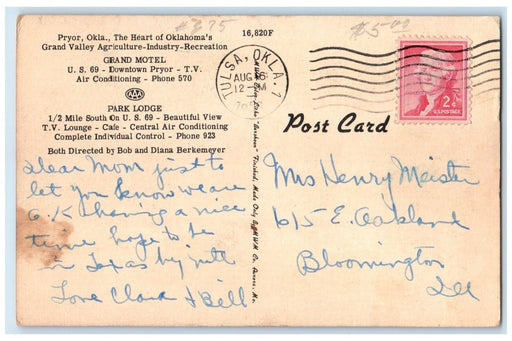 #675
$5.00
16,820F
Pryor, Okla., The Heart of Oklahoma's
Grand Valley Agriculture-Industry-Recreation
GRAND MOTEL
U. S. 69 - Downtown Pryor - T.V.
Air Conditioning - Phone 570
AAA
PARK LODGE
1/2 Mile South On U. S. 69 - Beautiful View
T.V. Lounge - Cafe - Central Air Conditioning
Complete Individual Control - Phone 923
Both Directed by Bob and Diana Berkemeyer
TULSA, OKLA. 7
AUG 6
12 - M
2¢
U.S. POSTAGE
Post Card
Dear Mom just to
let you know we are
O.K having a nice
time hope to be
in Texas by nite
Love Clara & Bill
Made Only By M.W.M. Co., Aurora, Mo.
Mrs Henry Meister
615 E. Oakland
Bloomington
Ill